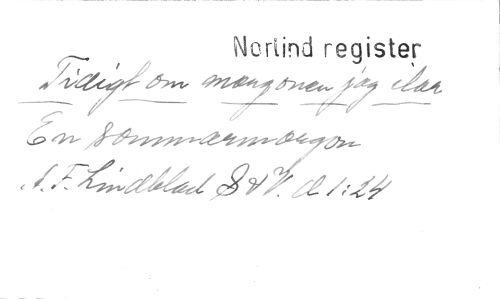 Norlind register
Tidigt om morgonen jag ilar
En sommarmorgon
A. F. Lindblad S & V. d 1:24